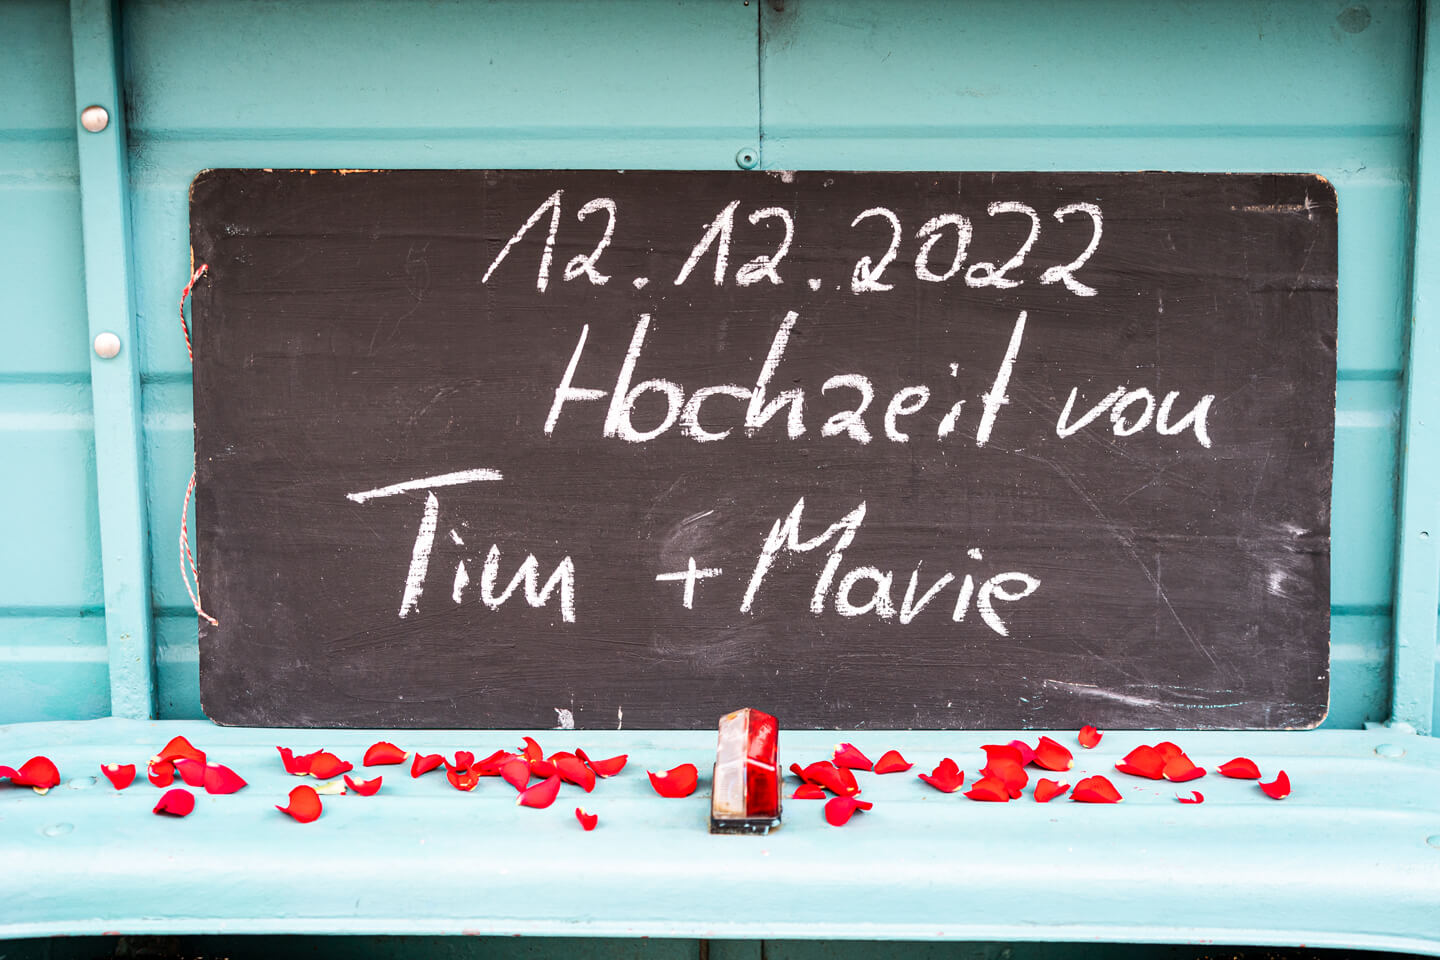 12.12.2022
Hochzeit von
Tim + Marie